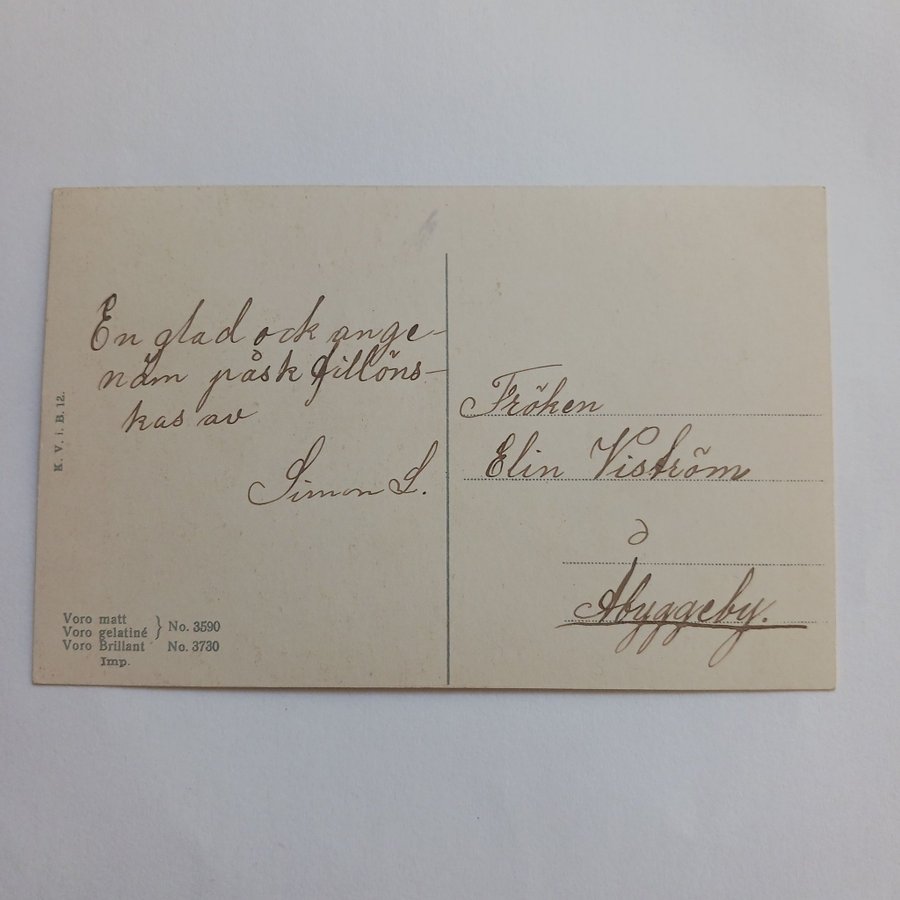 En glad ock ange-
näm påsk tillöns-
kas av
Simon L.
Fröken
Elin Viström
Åbyggeby.
K. V. i. B. 12.
Voro matt
Voro gelatiné } No. 3590
Voro Brillant No. 3730
Imp.